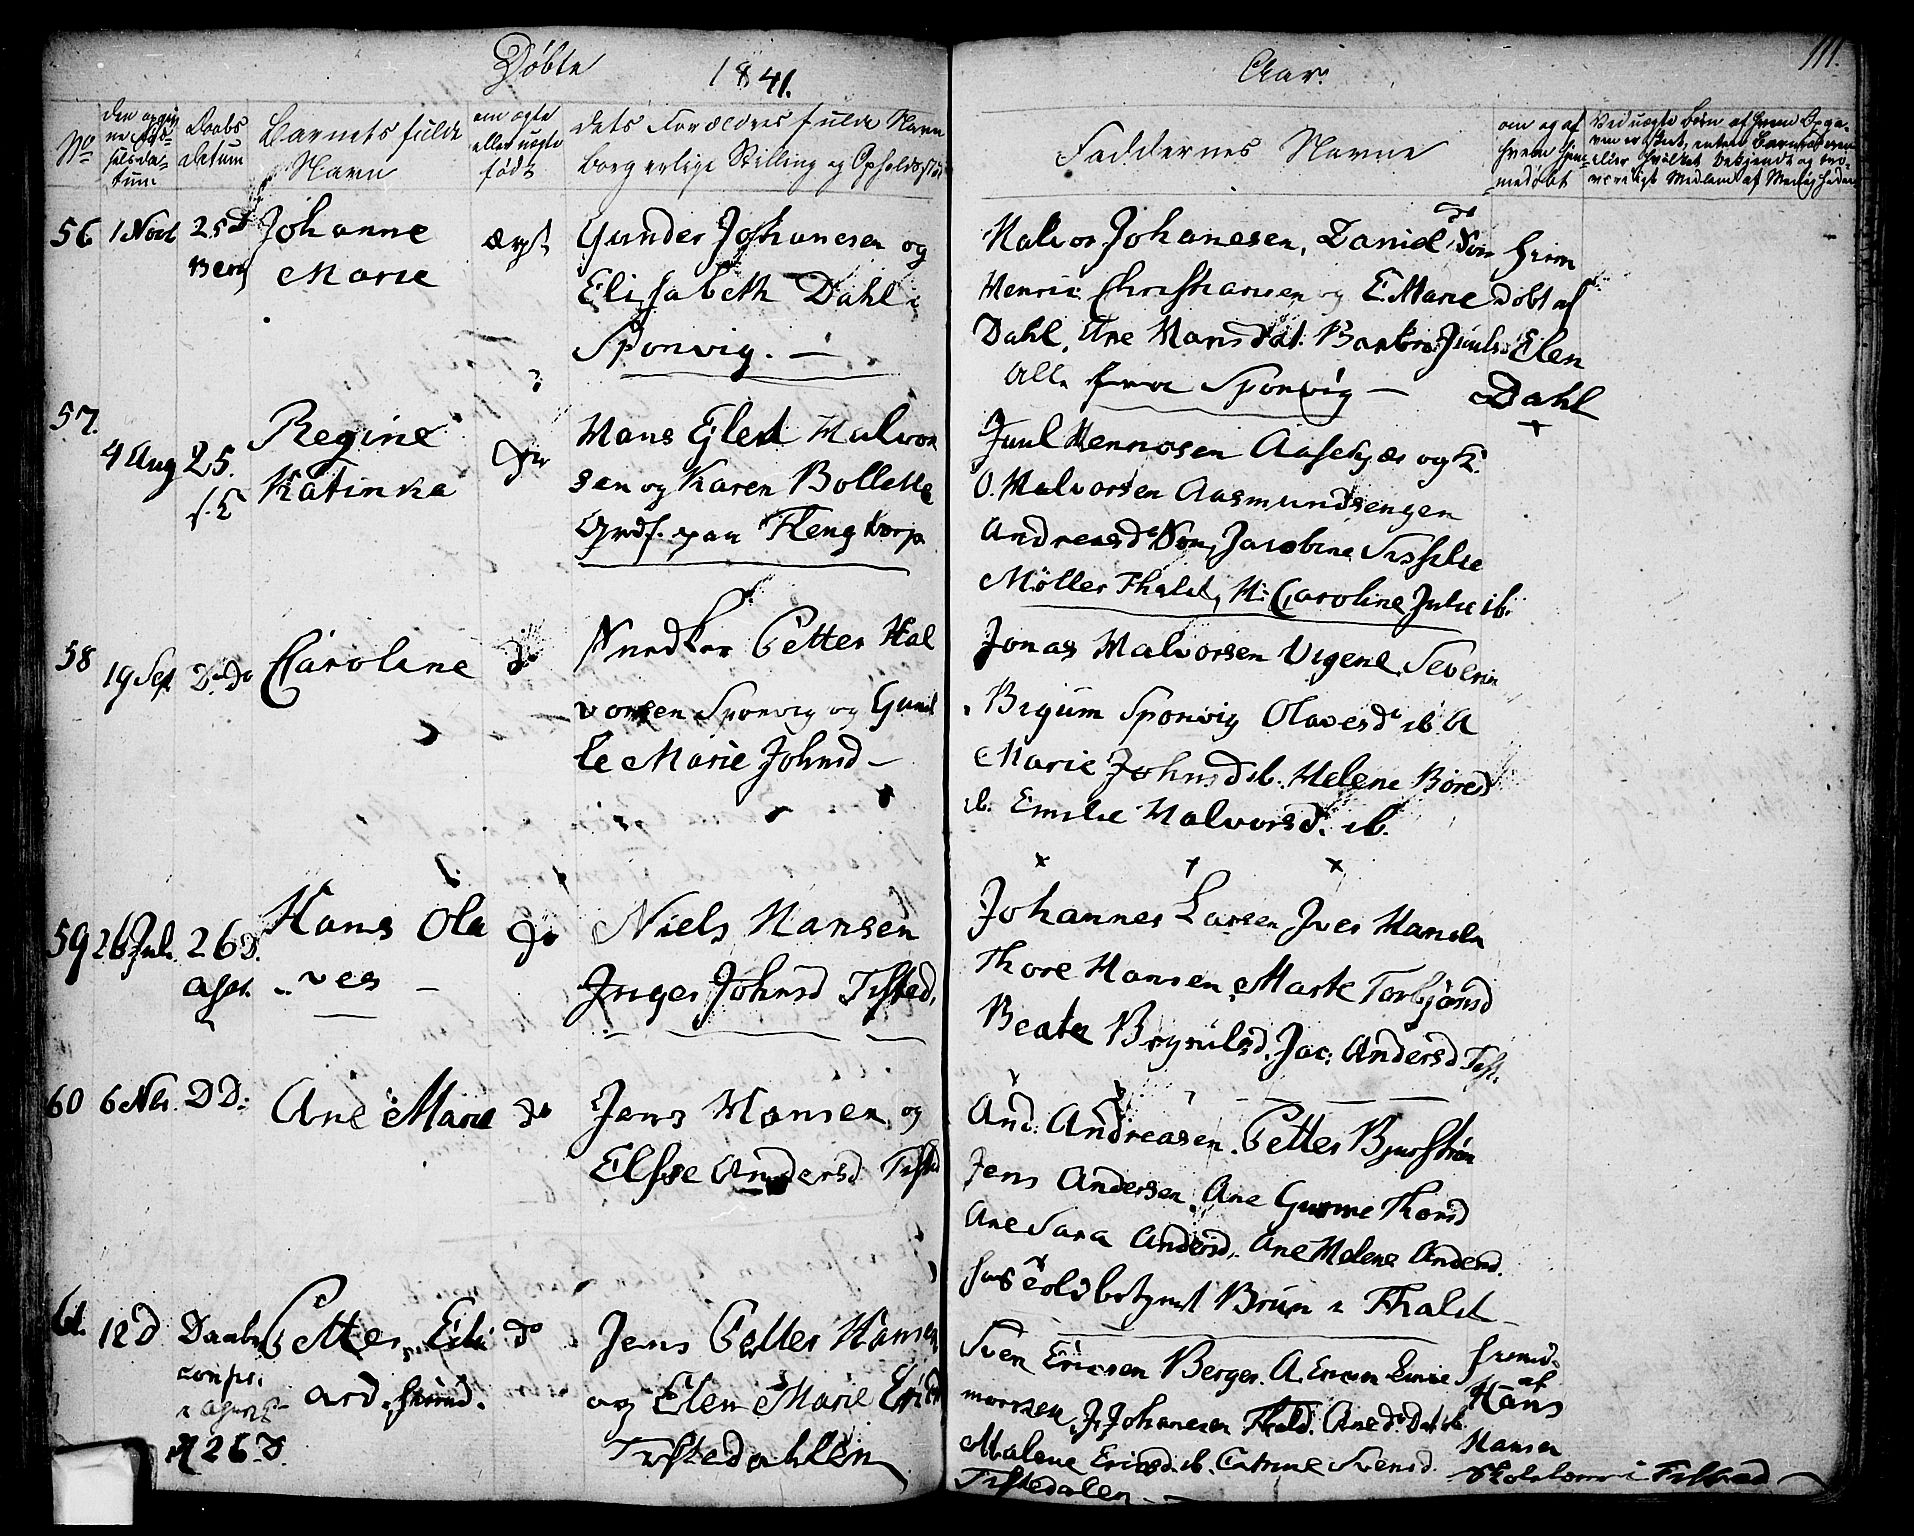 Döbte 1841. Aar. 111.
No
Daabs Datum
Barnets fulde Navn
om ægte eller uægte födt
dets Forældres fulde Navn borgerlige Stilling og Opholdssted
Faddernes Navne
om og af hvem hjemmedöbt
56 1 Novb 25 D
Johanne
Marie
ægt
Gunder Johanesen og
Elisabeth Dahl
Sponvig. —
Halvor Johanesen, Daniel do Son
Henric Christiansen og E. Marie
Dahl, Ane Hansdat. Barbro Juuls
Alle fra Sponvig —
hiem
döbt af
Elen
Dahl
57. 4 Aug 25.
Regine
Katinka
do
Hans Eylert Halvor
sen og Karen Bollette
Grdf. paa Fleng torp
Juul Hennosen Aasekjær og K.
O. Halvorsen Aasmundsengen
Andreas do Son, Jacobine Sissilie
Möller Fhald, H. Caroline Julie ib.
58 19 Sept D. Do
Caroline
do
Snedker Petter Hal
vorsen Sponvig og Gunil
le Marie Johnsd —
Jonas Halvorsen Vigene, Severin
Bigum Sponvig Olaves do ib A
Marie Johnsd ib. Helene Boresd
ib. Emilie Halvorsd. ib.
59 26 Jul. 26 D.
Hans Ola
ves —
do
Niels Hansen
Inger Johnsd Tisted.
Johannes Larsen Iver Hansen
Thore Hansen, Marte Torbjörnsd
Beate Brynilsd. Jac: Andersd Tist.
60 6 DD:
Ane Marie
do
Jens Hansen og
Elsse Andersd Tisted
And: Andreasen. Petter Bjurström
Jens Andersen, Ane Gurine Thorsd
Ane Sara Andersd, Ane Helene Andersd.
hos Toldbetjent Brun i Fhald —
61. 12 D Daabs
26 D.
Petter Edu
ard.
do
Jens Petter Hansen
og Elen Marie Ericsd
Tistedahlen
Sven Ericsen Berger. A. Ericsen
J. Johanesen Fhald. Ane do Dat ib.
Malene Ericsd ib. Catrine Svensd.
Tistedalen —
af
Hans
Hansen
Skolelærer i Tisted